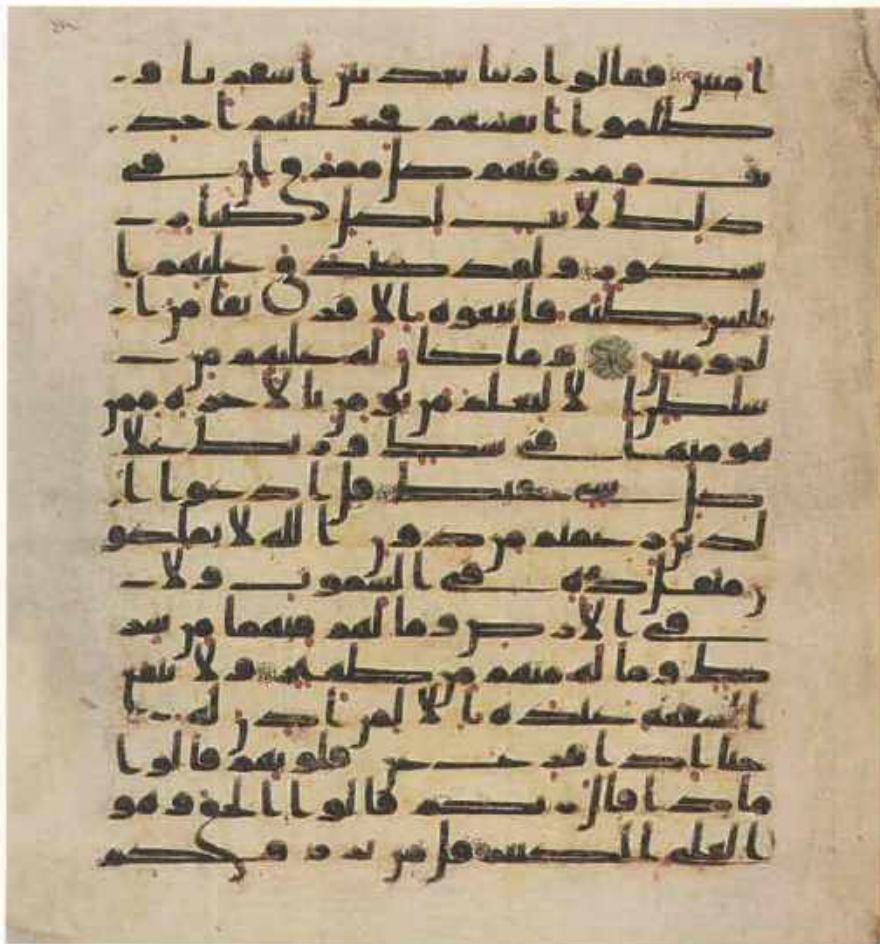 امنين فقالوا ربنا بعد بين اسفرنا و
ظلموا انفسهم فجعلنهم احد
يث ومزقنهم كل ممزق ان في
ذلك لايت لكل صبار
شكور ولقد صدق عليهم ا
بليس ظنه فاتبعوه الا فريقا من ا
لمومنين وما كان له عليهم من
سلطن الا لنعلم من يومن بالاخرة ممن
هو منها في شك وربك على
كل شي حفيظ قل ادعوا ا
لذين زعمتم من دون الله لا يملكو
ن مثقال ذرة في السموت ولا
في الارض وما لهم فيهما من شر
ك وما له منهم من ظهير ولا تنفع
الشفعة عنده الا لمن اذن له
حتى اذا فزع عن قلوبهم قالوا
ماذا قال ربكم قالوا الحق وهو
العلي الكبير قل من يرزقكم